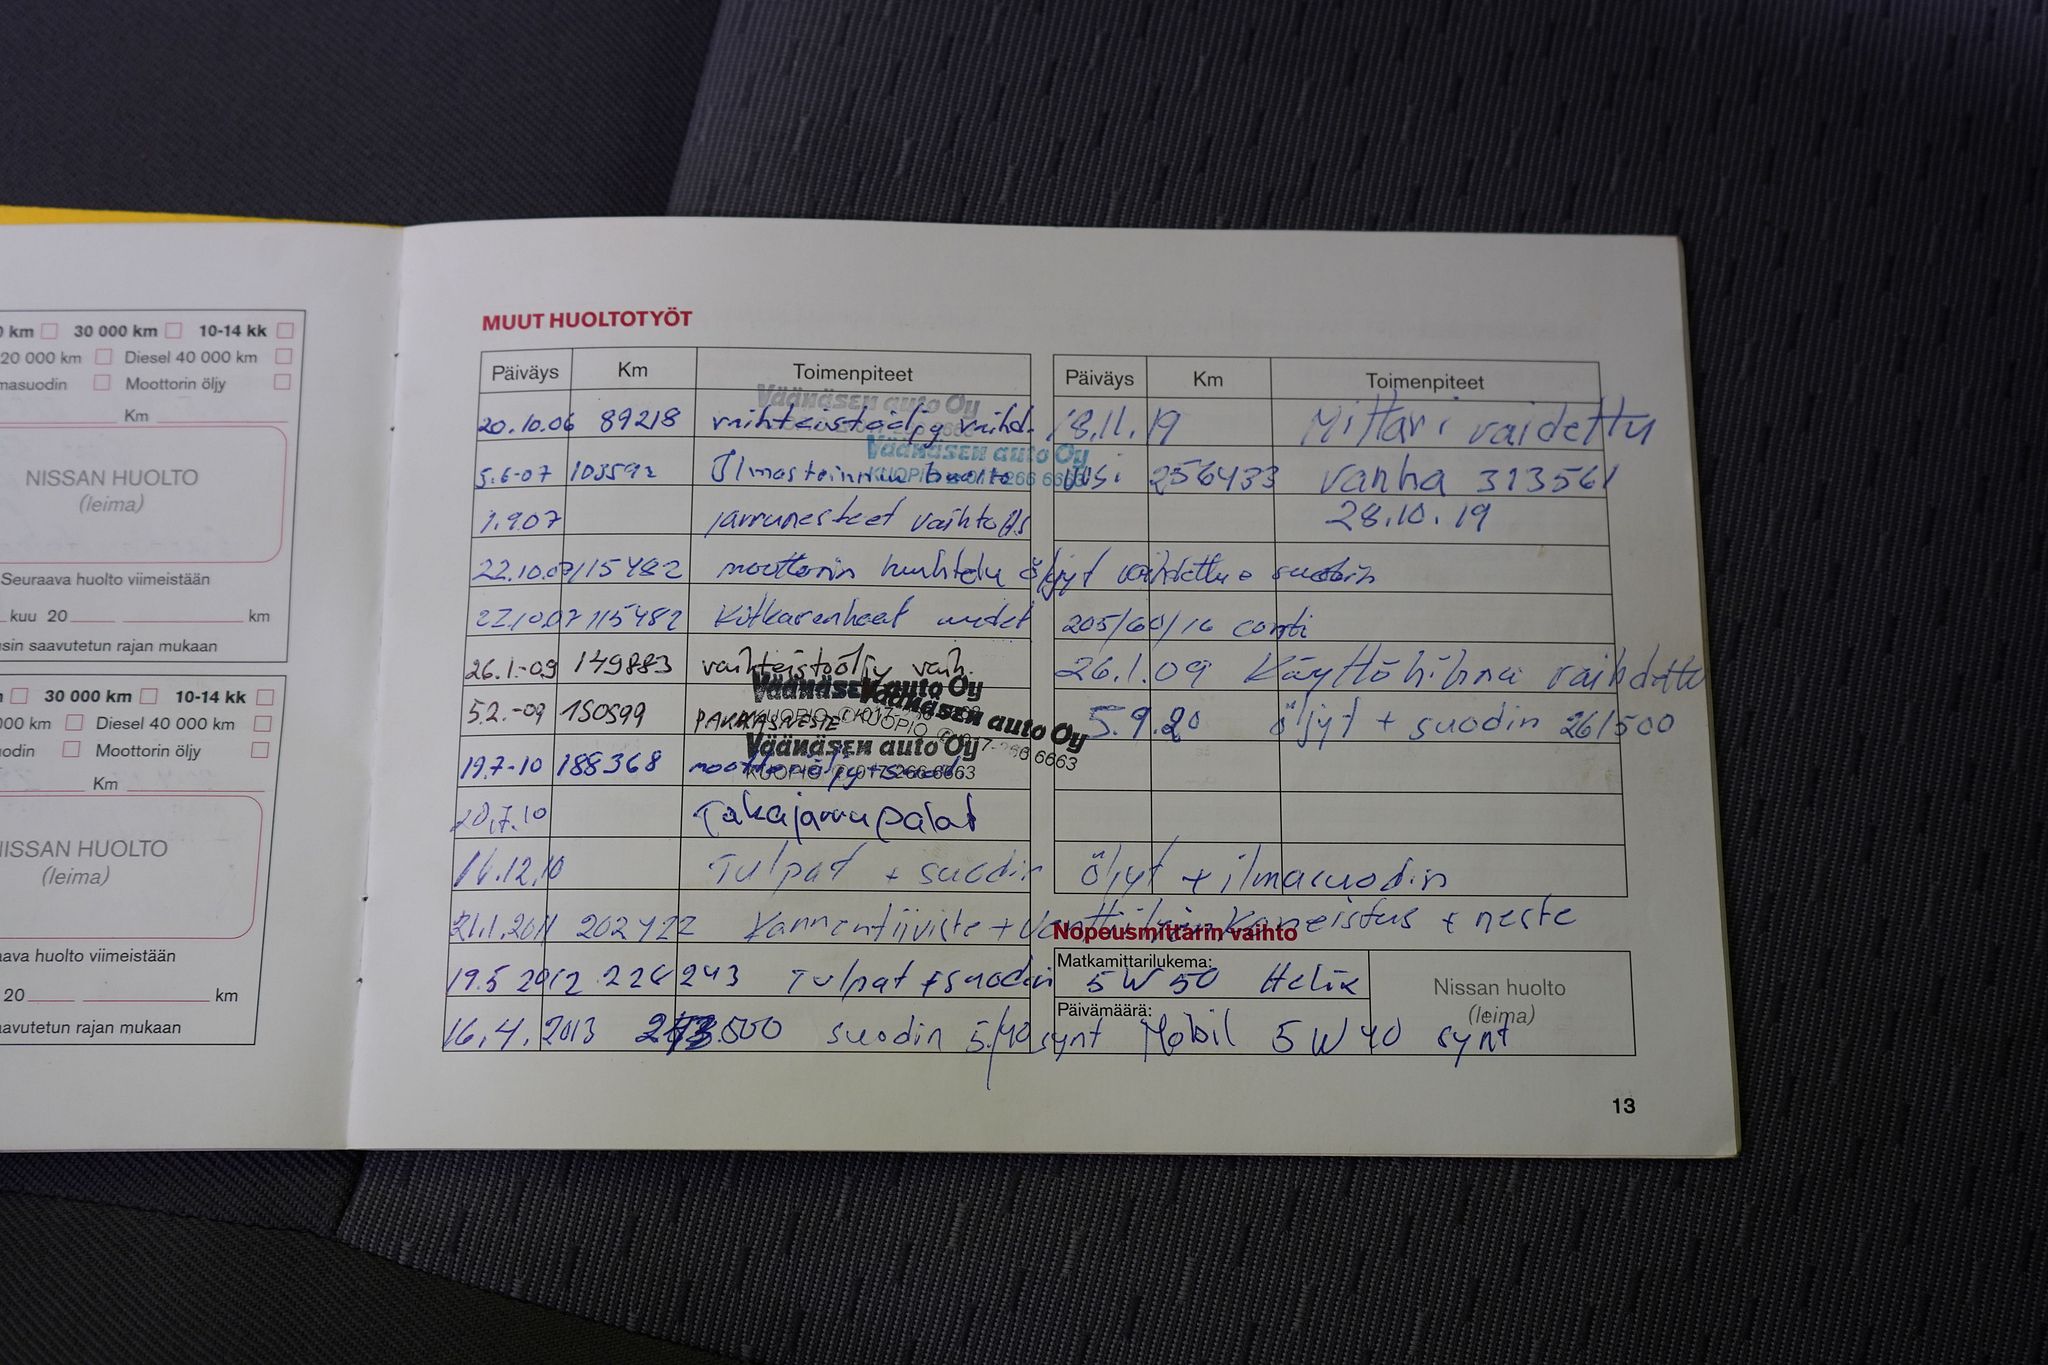 km 30 000 km 10-14 kk
20 000 km Diesel 40 000 km
masuodin Moottorin öljy
Km
NISSAN HUOLTO
(leima)
Seuraava huolto viimeistään
kuu 20 km
sin saavutetun rajan mukaan
30 000 km 10-14 kk
000 km Diesel 40 000 km
odin Moottorin öljy
Km
NISSAN HUOLTO
(leima)
aava huolto viimeistään
20 km
avutetun rajan mukaan
MUUT HUOLTOTYÖT
Päiväys Km Toimenpiteet
20.10.06 89218 vaihteistoöljy vaihd.
Väänäsen auto Oy
5.6-07 103592 Ilmastoinnin huolto
Väänäsen auto Oy
KUOPIO 017 266 6663
1.9.07 jarrunesteet vaihto
22.10.07 115482 moottorin huuhtelu öljyt vaihdettu + suodin
22.10.07 115482 Kitkarenkaat uudet 205/60/16 conti
26.1.-09 149883 vaihteistoöljy vaih.
Väänäsen auto Oy
5.2.-09 150599 PAKKASNESTE
Väänäsen auto Oy
KUOPIO 017-266 6663
19.7-10 188368 moottoriöljy + suod
Väänäsen auto Oy
KUOPIO 017 266 6663
20.7.10 Takajarrupalat
16.12.10 Tulpat + suodin öljyt + ilmasuodin
21.1.2011 202422 Kannentiiviste + + neste
19.5 2012 226243 Tulpat + suodin 5W50 Helix
16.4.2013 .500 suodin 5/40 synt Mobil 5W40 synt
Päiväys Km Toimenpiteet
18.11.19 Mittari vaidettu
Uusi 256433 vanha 313561
28.10.19
26.1.09 Käyttöhihna vaihdettu
5.9.20 öljyt + suodin 261500
Nopeusmittarin vaihto
Matkamittarilukema:
Päivämäärä:
Nissan huolto
(leima)
13